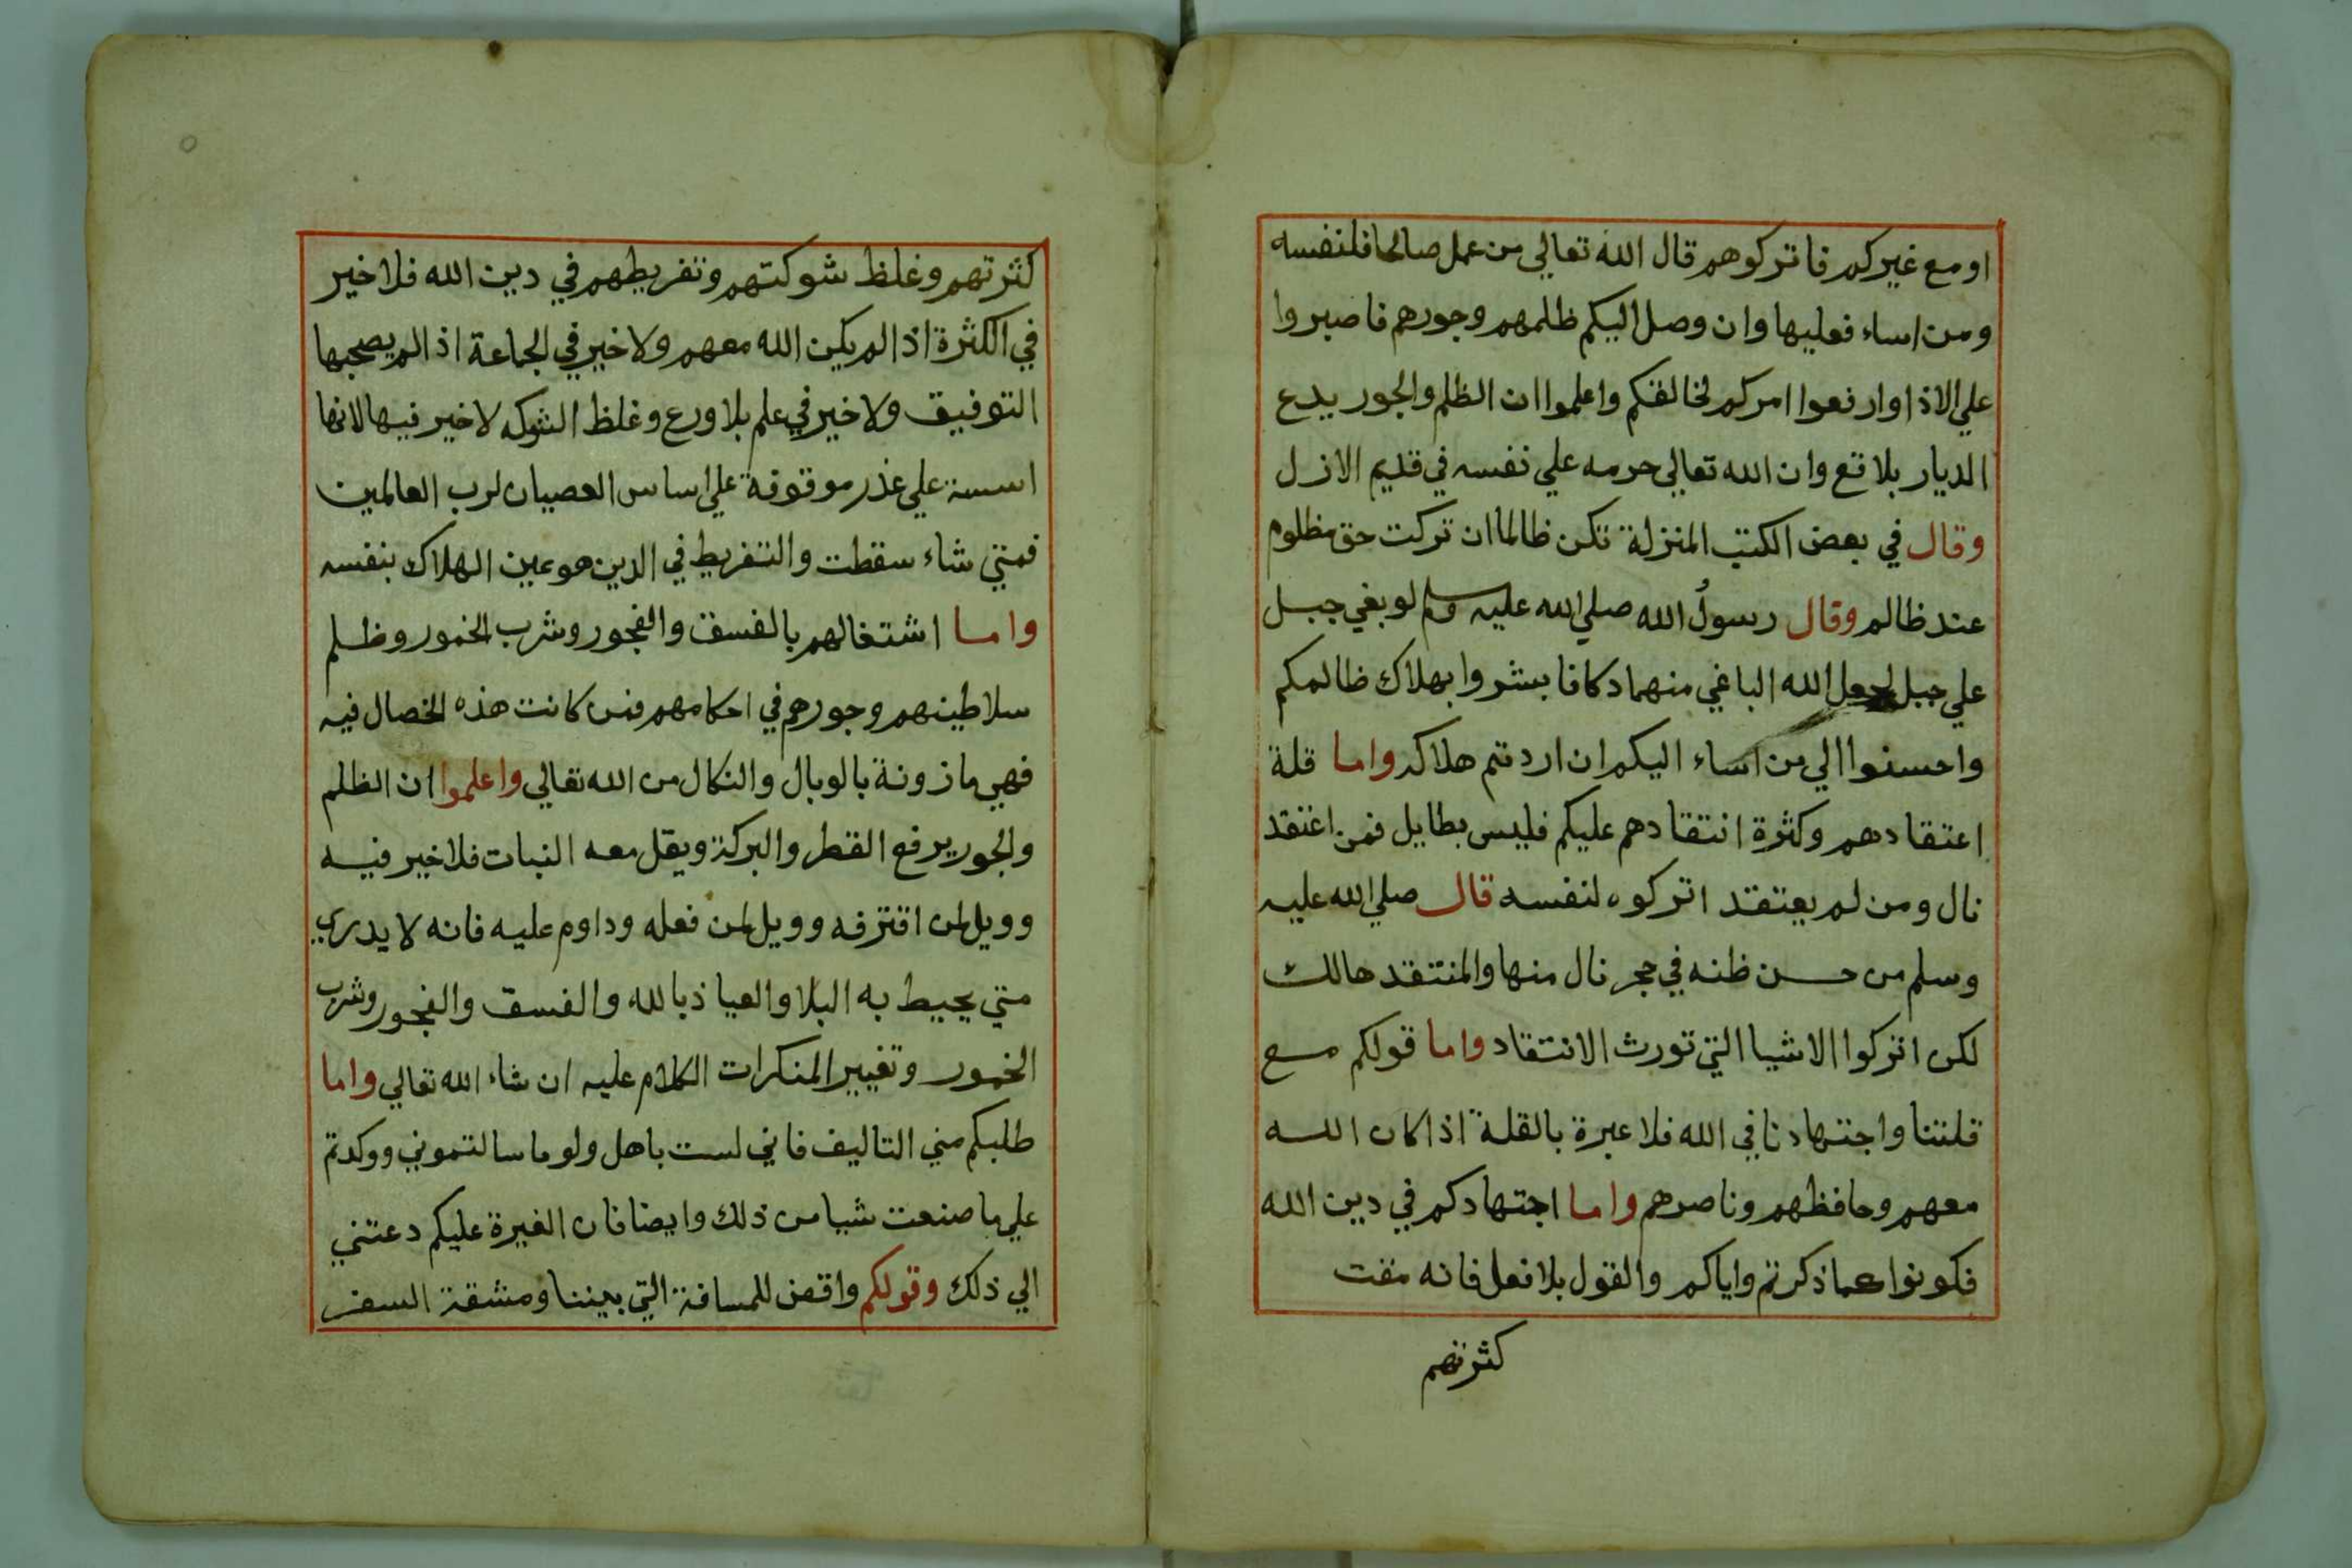 او مع غيركم فاتركوهم قال الله تعالي من عمل صالحا فلنفسه
ومن اساء فعليها وان وصل اليكم ظلمهم وجورهم فاصبروا
علي الاذا وارفعوا امركم لخالفكم واعلموا ان الظلم والجور يدع
الديار بلاقع وان الله تعالي حرمه علي نفسه في قديم الازل
وقال في بعض الكتب المنزلة تكن ظالما ان تركت حق مظلوم
عند ظالم وقال رسول الله صلي الله عليه وسلم لو بغي جبل
علي جبل لجعل الله الباغي منهما دكا فابشروا بهلاك ظالمكم
واحسنوا الي من اساء اليكم ان اردتم هلاكه واما قلة
اعتقادهم وكثرة انتقادهم عليكم فليس بطايل فمن اعتقد
نال ومن لم يعتقد اتركوه لنفسه قال صلي الله عليه
وسلم من حسن ظنه في حجر نال منها والمنتقد هالك
لكن اتركوا الاشيا التي تورث الانتقاد واما قولكم مع
قلتنا واجتهادنا في الله فلا عبرة بالقلة اذا كان الله
معهم وحافظهم وناصرهم واما اجتهادكم في دين الله
فكونوا كما ذكرتم واياكم والقول بلا فعل فانه مقت
كثرتهم
كثرتهم وغلظ شوكتهم وتفريطهم في دين الله فلا خير
في الكثرة اذا لم يكن الله معهم ولا خير في الجماعة اذا لم يصحبها
التوفيق ولا خير في علم بلا ورع وغلظ الشوكه لا خير فيها لانها
اسسة علي غدر موقوفة علي اساس العصيان لرب العالمين
فمتي شاء سقطت والتفريط في الدين هو عين الهلاك بنفسه
واما اشتغالهم بالفسق والفجور وشرب الخمور وظلم
سلاطينهم وجورهم في احكامهم فمن كانت هذه الخصال فيه
فهي مازونة بالوبال والنكال من الله تعالي واعلموا ان الظلم
والجور يرفع القطر والبركة ويقل معه النبات فلا خير فيه
وويل لمن اقترفه وويل لمن فعله وداوم عليه فانه لا يدري
متي يحيط به البلا والعياذ بالله والفسق والفجور وشرب
الخمور وتغيير المنكرات الكلام عليه ان شاء الله تعالي واما
طلبكم مني التاليف فاني لست باهل ولو ما سالتموني ووكدتم
علي ما صنعت شيا من ذلك وايضا فان الغيرة عليكم دعتني
الي ذلك وقولكم واقض للمسافة التي بيننا ومشقة السفر